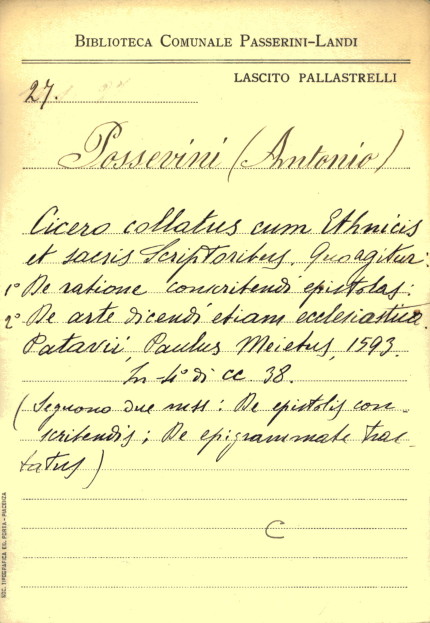 BIBLIOTECA COMUNALE PASSERINI-LANDI
LASCITO PALLASTRELLI
27.
Possevini (Antonio)
Cicero collatus cum Ethnicis
et sacris Scriptoribus. Quo agitur:
1° De ratione conscribendi epistolas:
2° De arte dicendi etiam ecclesiastica.
Patavii, Paulus Meietus, 1593.
In-4° di cc 38.
(Seguono due mss: De epistolis con-
scribendis; De epigrammate trac-
tatus)
C
SOC. TIPOGRAFICA ED. PORTA - PIACENZA